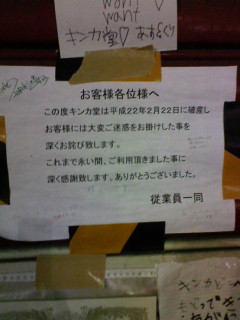 want
キンカ堂♡
お客様各位様へ
この度キンカ堂は平成22年2月22日に破産し
お客様には大変ご迷惑をお掛けした事を
深くお詫び致します。
これまで永い間、ご利用頂きました事に
深く感謝致します。ありがとうございました。
従業員一同
キンカどーへ